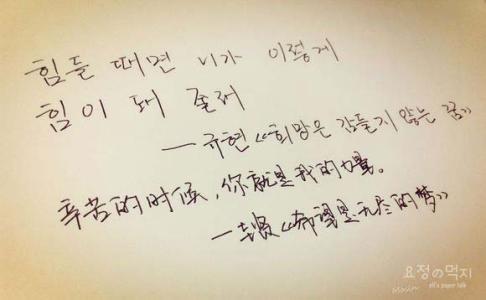 힘들 때면 니가 이렇게
힘이 돼 줄래
—규현《희망은 잠들지 않는 꿈》
辛苦的时候，你就是我的力量。
—圭贤《希望是无尽的梦》
요정の먹지
elf's paper talk